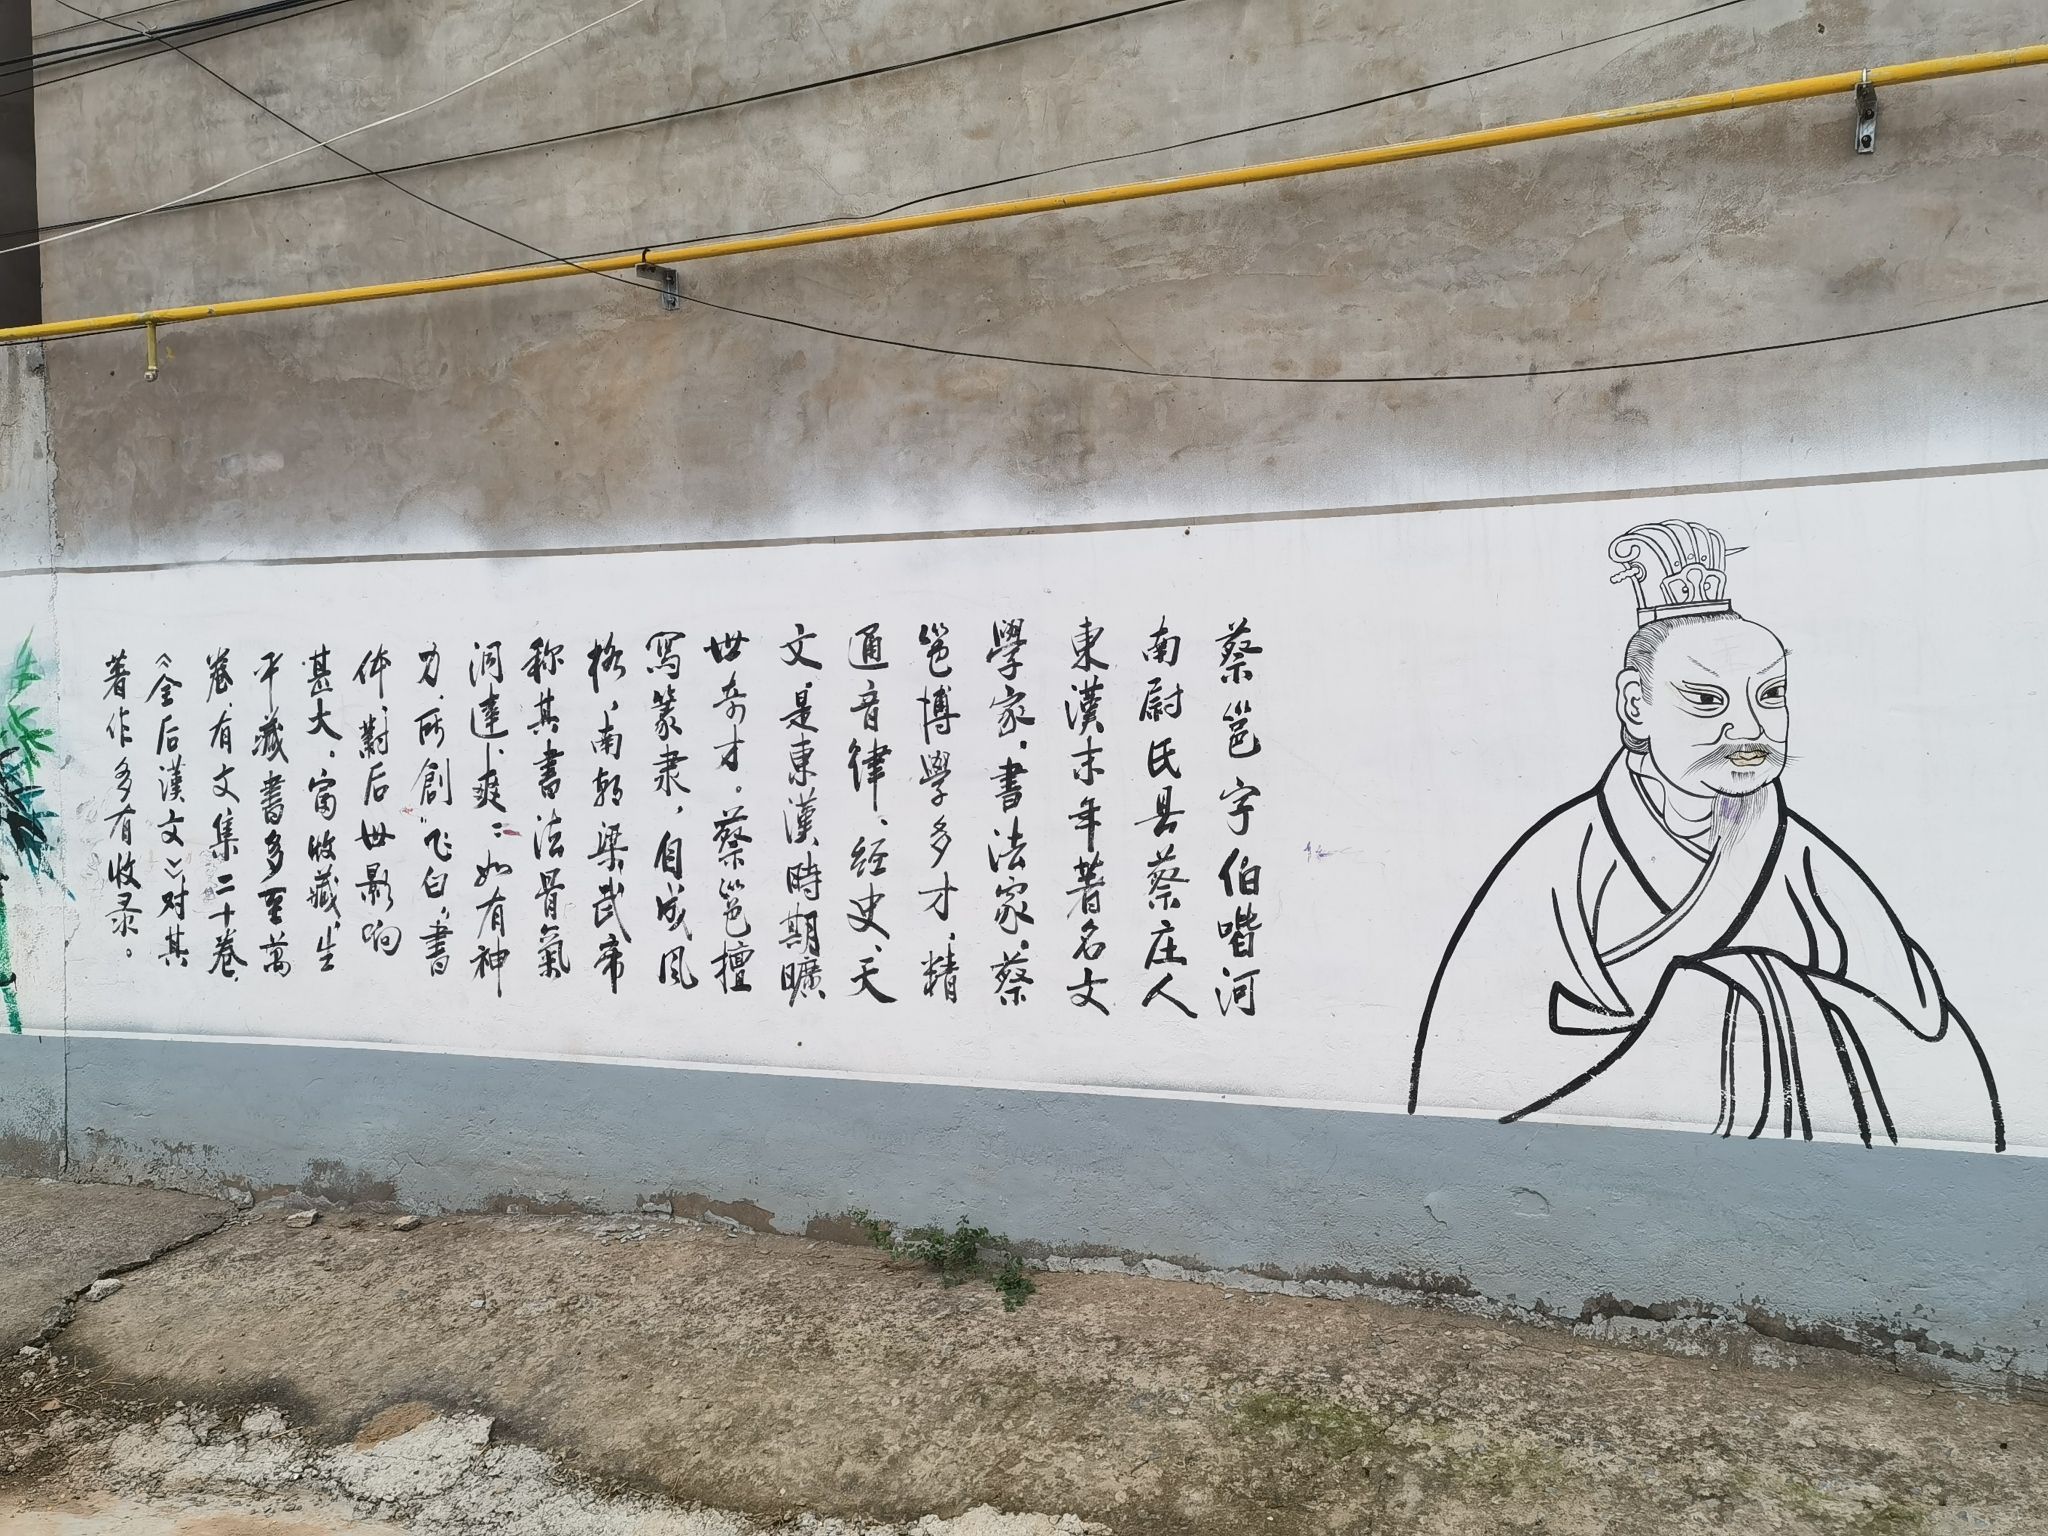 蔡邕字伯喈河
南尉氏县蔡庄人
東漢末年著名文
學家、書法家、蔡
邕博學多才、精
通音律、经史、天
文、是東漢時期曠
世奇才。蔡邕擅
寫篆隶，自成风
格，南朝梁武帝
称其書法骨氣
洞達、爽爽如有神
力，所創“飞白”書
体、對后世影响
甚大。富收藏、生
平藏書多至萬
卷、有文集二十卷、
《全后漢文》对其
著作多有收录。